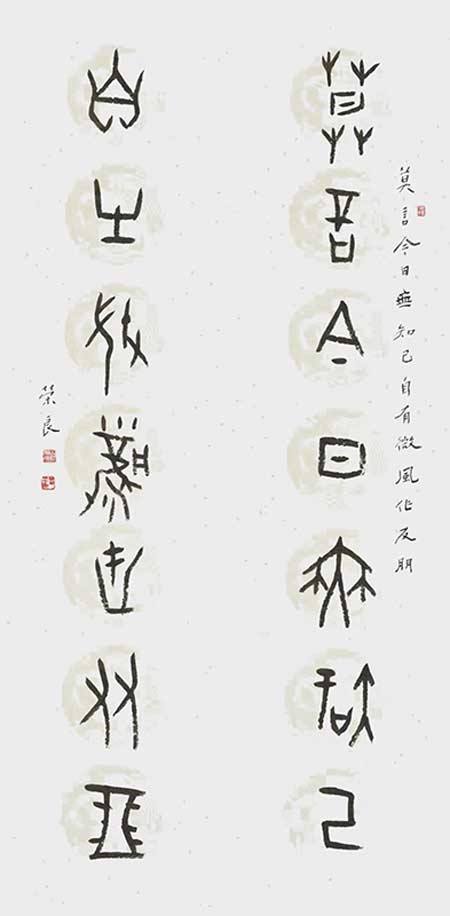 莫言今日無知己自有微風作友朋
莫言今日無知己
自有微風作友朋
榮良